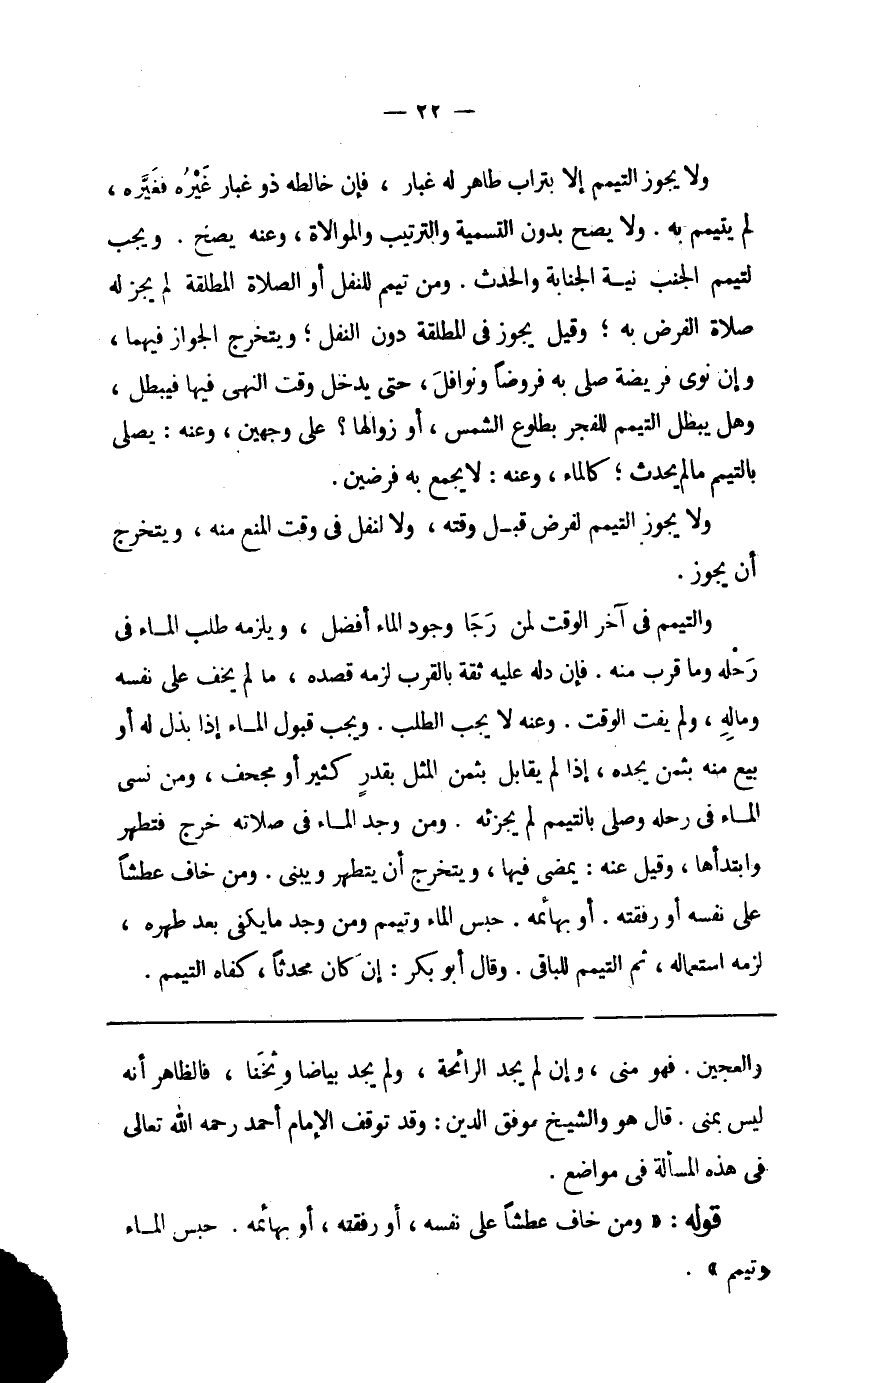 — ٢٢ —
ولا يجوز التيمم إلا بتراب طاهر له غبار ، فإن خالطه ذو غبار غَيْرُه فغَيَّره ،
لم يتيمم به . ولا يصح بدون التسمية والترتيب والموالاة ، وعنه يصح . ويجب
لتيمم الجنب نيـة الجنابة والحدث . ومن تيمم للنفل أو الصلاة المطلقة لم يجز له
صلاة الفرض به ؛ وقيل يجوز فى المطلقة دون النفل ؛ ويتخرج الجواز فيهما ،
وإن نوى فريضة صلى به فروضاً ونوافلَ ، حتى يدخل وقت النهى فيها فيبطل ،
وهل يبطل التيمم للفجر بطلوع الشمس ، أو زوالها ؟ على وجهين ، وعنه : يصلى
بالتيمم مالم يحدث ؛ كالماء ، وعنه : لايجمع به فرضين .
ولا يجوز التيمم لفرض قبـل وقته ، ولا لنفل فى وقت المنع منه ، ويتخرج
أن يجوز .
والتيمم فى آخر الوقت لمن رَجَا وجود الماء أفضل ، ويلزمه طلب المـاء فى
رَحْله وما قرب منه . فإن دله عليه ثقة بالقرب لزمه قصده ، ما لم يخف على نفسه
ومالِهِ ، ولم يفت الوقت . وعنه لا يجب الطلب . ويجب قبول المـاء إذا بذل له أو
بيع منه بثمن يجده ، إذا لم يقابل بثمن المثل بقدرٍ كثير أو مجحف ، ومن نسى
المـاء فى رحله وصلى بالتيمم لم يجزئه . ومن وجد المـاء فى صلاته خرج فتطهر
وابتدأها ، وقيل عنه : يمضى فيها ، ويتخرج أن يتطهر ويبنى . ومن خاف عطشاً
على نفسه أو رفقته . أو بهائمه . حبس الماء وتيمم ومن وجد مايكفى بعد طهره ،
لزمه استعماله ، ثم التيمم للباقى . وقال أبو بكر : إن كان محدثاً ، كفاه التيمم .
والعجين . فهو منى ، وإن لم يجد الرائحة ، ولم يجد بياضا وثُخَنا ، فالظاهر أنه
ليس بمنى . قال هو والشيخ موفق الدين : وقد توقف الإمام أحمد رحمه الله تعالى
فى هذه المسألة فى مواضع .
قوله : « ومن خاف عطشاً على نفسه ، أو رفقته ، أو بهائمه . حبس المـاء
وتيمم » .